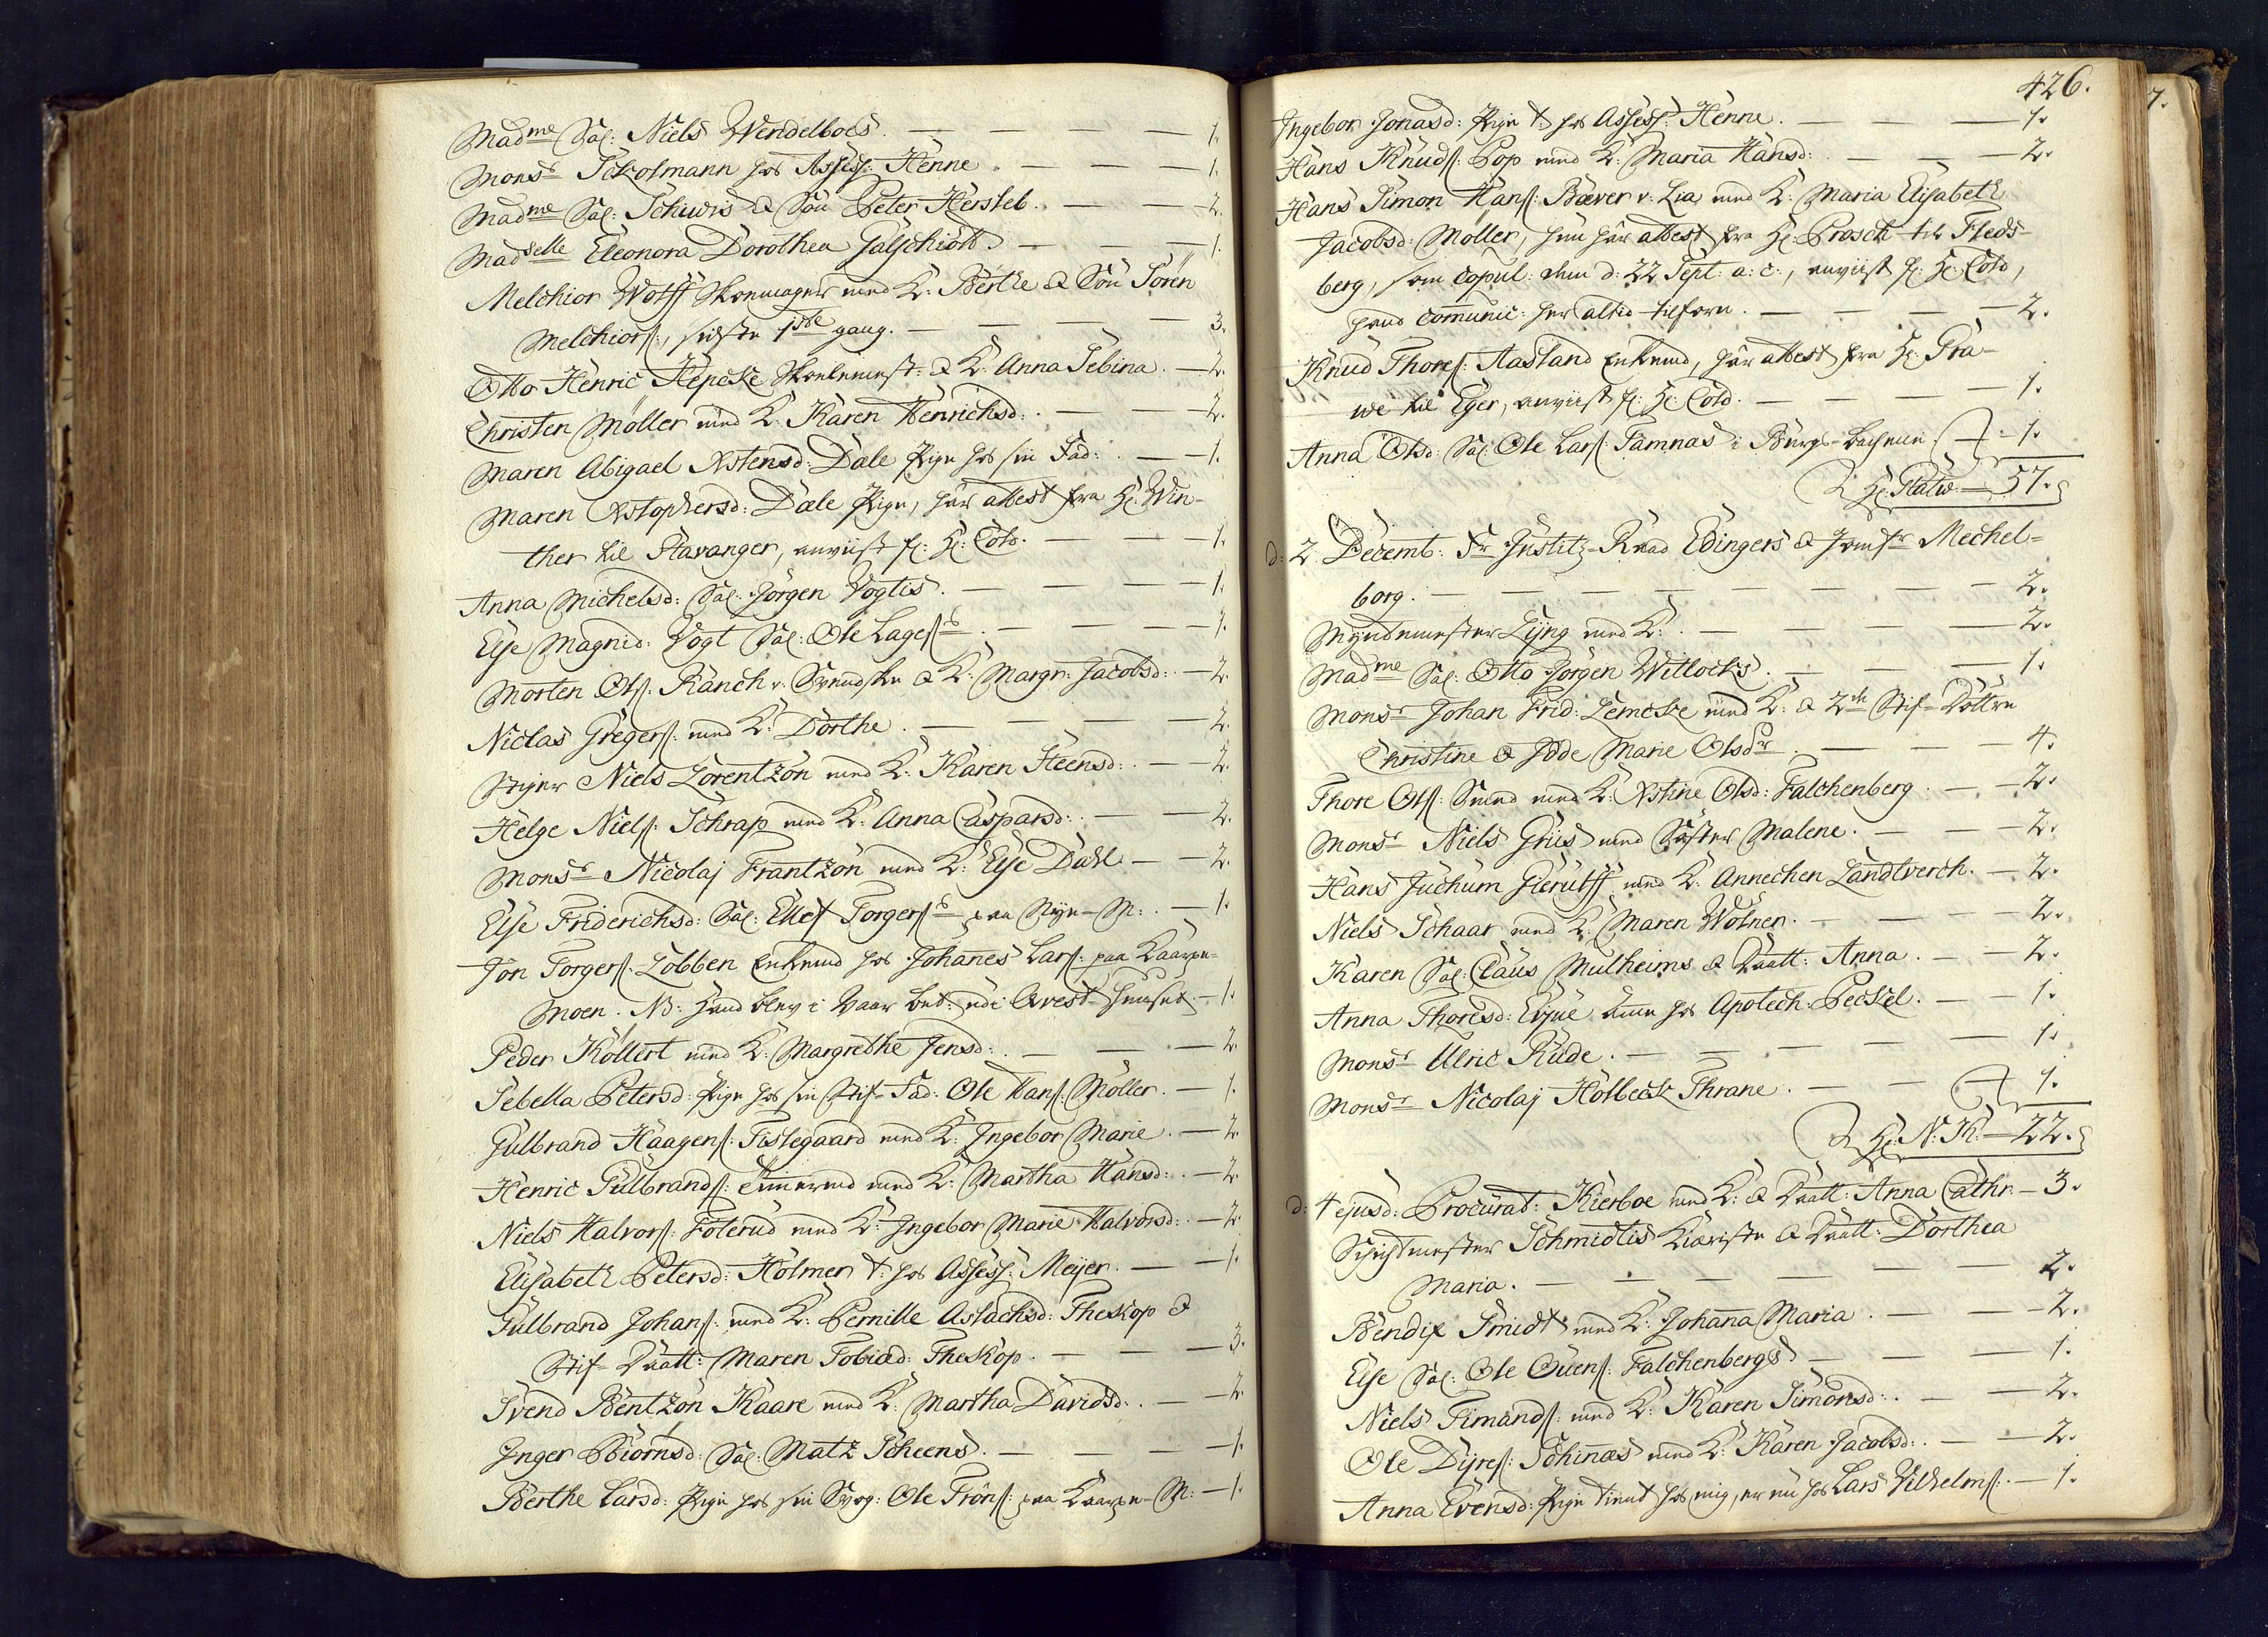 Mad^me Sal: Niels Wendelboes. — — — — 1.
Mons^r Schotmann hos Assess: Henne. — — — 1.
Mad^me Sal: Schiwis & Søn Peter Hersleb. — — 2.
Mad^selle Eleonora Dorothea — — 1.
Melchior Wolff Skoemager med K: Berthe & Søn Sören
Melchiors:, sidste 1ste gang. — — — — 3.
Otto Henric Hepcke Skolemest: & K: Anna Sebina. — 2.
Christen Möller med K: Karen Henrichsd: — — 2.
Maren Abigael Xstensd: Dale Pige hos sin Fad: — — 1.
Maren Xstophersd: Dale Pige, har attest fra Hr: Win-
ther til Stavanger, anviist f: Hr: Cold. — — 1.
Anna Michelsd: Sal: Jörgen Vogtis. — — — — 1.
Else Magnid: Vogt Sal: Ole Lages: — — — 1.
Morten Ols: Ranch v: Svendske & K: Margr: Jacobsd: — 2.
Niclas Gregers: med K: Dorthe. — — — — 2.
Stiger Niels Lorentzon med K: Karen Steensd: — — 2.
Helge Niels: Schrap med K: Anna Caspersd: — — 2.
Mons^r Nicolaj Frantzon med K: Else Dahl — — 2.
Else Friderichsd: Sal: Ellef Torgers: paa Nye-M: — 1.
Jon Torgers: Lobben Enkemd hos Johanes Lars: paa Kaarpe-
Moen. NB: Hand blev i Vaar bet: udi Arrest-Huuset. — 1.
Peder Köllert med K: Margrethe Jensd: — — — 2.
Sebella Petersd: Pige hos sin Stif-Fad: Ole Hans: Möller. — 1.
Gulbrand Haagens: Fislegaard med K: Ingebor Marie. — 2.
Henric Gulbrands: med K: Martha Hansd: — 2.
Niels Halvors: Foterud med K: Ingebor Marie Halvorsd: — 2.
Elisabeth Petersd: Holmen t: hos Assess: Meijer. — — 1.
Gulbrand Johans: med K: Pernille Aslachsd: Theskop &
Stif-Daatt: Maren Tobiæd: Theskop. — — — 3.
Svend Bentzon Kaare med K: Martha Davidsd: — — 2.
Inger Biörnsd: Sal: Matz Scheens. — — — — 1.
Berthe Larsd: Pige hos sin Svog: Ole Tröns: paa Kaarpe-M: — 1.
426.
Ingebor Jonasd: Pige t: hos Assess: Henne. — — — 1.
Hans Knuds: Pop med K: Maria Hansd: — — — 2.
Hans Simon Hans: Bæver v: Lia med K: Maria Elisabeth
Jacobsd: Möller, hun har attest fra Hr: Prosch til Fleds-
berg, som copul: dem d: 22 Sept: a: c:, anviist f: Hr: Cold,
hand comunic: her altid tilforn. — — — 2.
Knud Thores: Aasland Enkemd, har attest fra Hr: Stra-
we til Eger, anviist f: Hr: Cold. — — — 1.
Anna Olsd: Sal: Ole Lars: Tamnas i — 1.
Hr: Platw: — 57.
d: 2 Decemb: Fr Justitz-Raad Edingers & Jomfr Mechel-
borg. — — — — — — 2.
Myndtmester Lyng med K: — — — — 2.
Mad^me Sal: Otto Jörgen Witlocks. — — — 1.
Mons^r Johan Frid: Lemcke med K: & 2de Stif-Döttre
Christine & Jöde Marie Olsd^r. — — — — 4.
Thore Ols: Smed med K: Xstine Olsd: Falchenberg. — — 2.
Mons^r Niels Griis med Söster Malene. — — — 2.
Hans Juchum Gierutff med K: Annechen Landtverch. — 2.
Niels Schaar med K: Maren Wolner. — — — — 2.
Karen Sal: Claus Mulheims & Daatt: Anna. — — 2.
Anna Thoresd: Evjue Ame hos Apotech: Peckel. — — 1.
Mons^r Ulric Rude. — — — — — — 1.
Mons^r Nicolaj Holbeck Thrane. — — — 1.
Hr: N: K: — 22.
d: 4 ejusd: Procurat: Kierboe med K: & Daatt: Anna Cathr: — 3.
Schichtmester Schmidtis Kiæriste & Daatt: Dorthea
Maria. — — — — — — 2.
Bendix Smidt med K: Johana Maria. — — — 2.
Else Sal: Ole Ouens: Falchenbergs — — — 1.
Niels Timands: med K: Karen Simonsd: — — 2.
Ole Dyres: Schinæs med K: Karen Jacobsd: — — 2.
Anna Evensd: Pige tient hos mig, er nu hos Lars Vilhelms: — 1.
7.